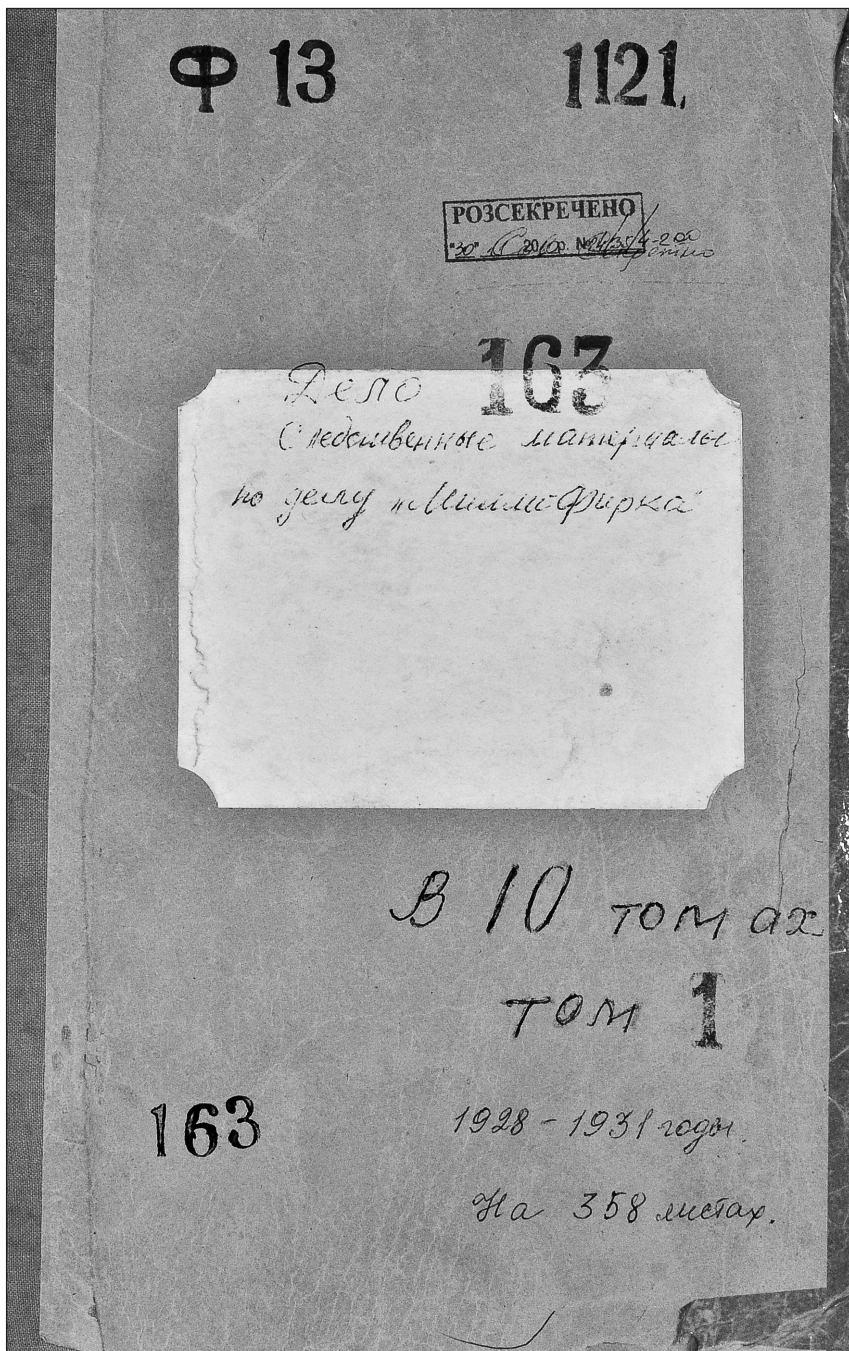 Ф 13 1121
РОЗСЕКРЕЧЕНО
"30" 20 р. №
163
Дело
Следственные материалы
по делу „Милли-Фирка"
В 10 томах
том 1
163
1928 - 1931 годы.
На 358 листах.